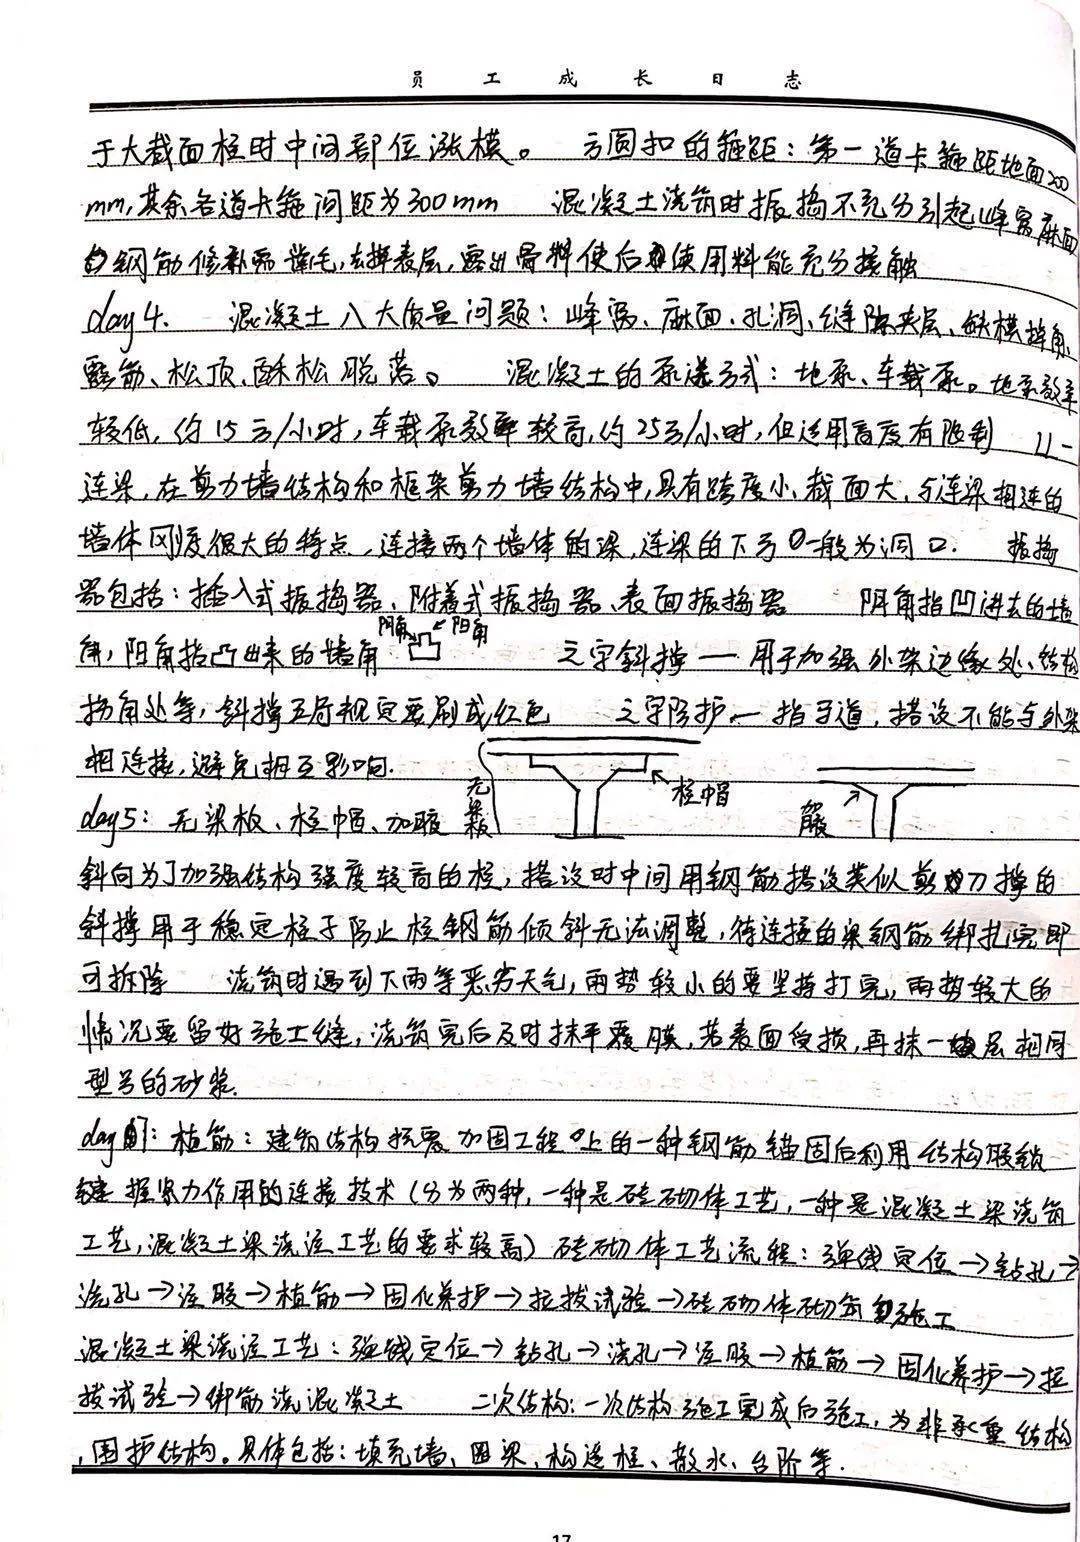 员工成长日志
于大截面柱时中间部位涨模。 方圆扣的箍距：第一道卡箍距地面200
mm，其余各道卡箍间距为300mm 混凝土浇筑时振捣不充分引起峰窝麻面
的钢筋修补需凿毛，去掉表层，露出骨料使后使用料能充分接触
day4. 混凝土八大质量问题：峰窝、麻面、孔洞、缝隙夹层、缺棱掉角、
露筋、松顶、酥松脱落。 混凝土的泵送方式：地泵、车载泵。地泵效率
较低，约15方/小时，车载泵效率较高，约25方/小时，但适用高度有限制
连梁，在剪力墙结构和框架剪力墙结构中，具有跨度小、截面大，与连梁相连的
墙体刚度很大的特点，连接两个墙体的梁，连梁的下方一般为洞口. 振捣
器包括：插入式振捣器、附着式振捣器、表面振捣器 阴角指凹进去的墙
阴角 阳角
角，阳角指凸出来的墙角 之字斜撑 — 用于加强外架边缘处、结构
拐角处等，斜撑五局规定要刷成红色 之字防护 — 指马道，搭设不能与外架
相连接，避免相互影响.
day5：无梁板、柱帽、加腋 无梁板 柱帽 加腋
斜向为了加强结构强度较高的柱，搭设时中间用钢筋搭设类似剪刀撑的
斜撑用于稳定柱子防止柱钢筋倾斜无法调整，待连接的梁钢筋绑扎完即
可拆除 浇筑时遇到下雨等恶劣天气，雨势较小的要坚持打完，雨势较大的
情况要留好施工缝，浇筑完后及时抹平覆膜，若表面受损，再抹一层相同
型号的砂浆.
day7：植筋：建筑结构抗震加固工程上的一种钢筋锚固后利用结构胶锁
键握紧力作用的连接技术（分为两种，一种是砖砌体工艺，一种是混凝土梁浇筑
工艺，混凝土梁浇注工艺的要求较高）砖砌体工艺流程：弹线定位→钻孔→
洗孔→注胶→植筋→固化养护→拉拔试验→砖砌体砌筑施工
混凝土梁浇注工艺：弹线定位→钻孔→洗孔→注胶→植筋→固化养护→拉
拔试验→绑筋浇混凝土 二次结构：一次结构施工完成后施工，为非承重结构
，围护结构。具体包括：填充墙、圈梁、构造柱、散水、台阶等.
17